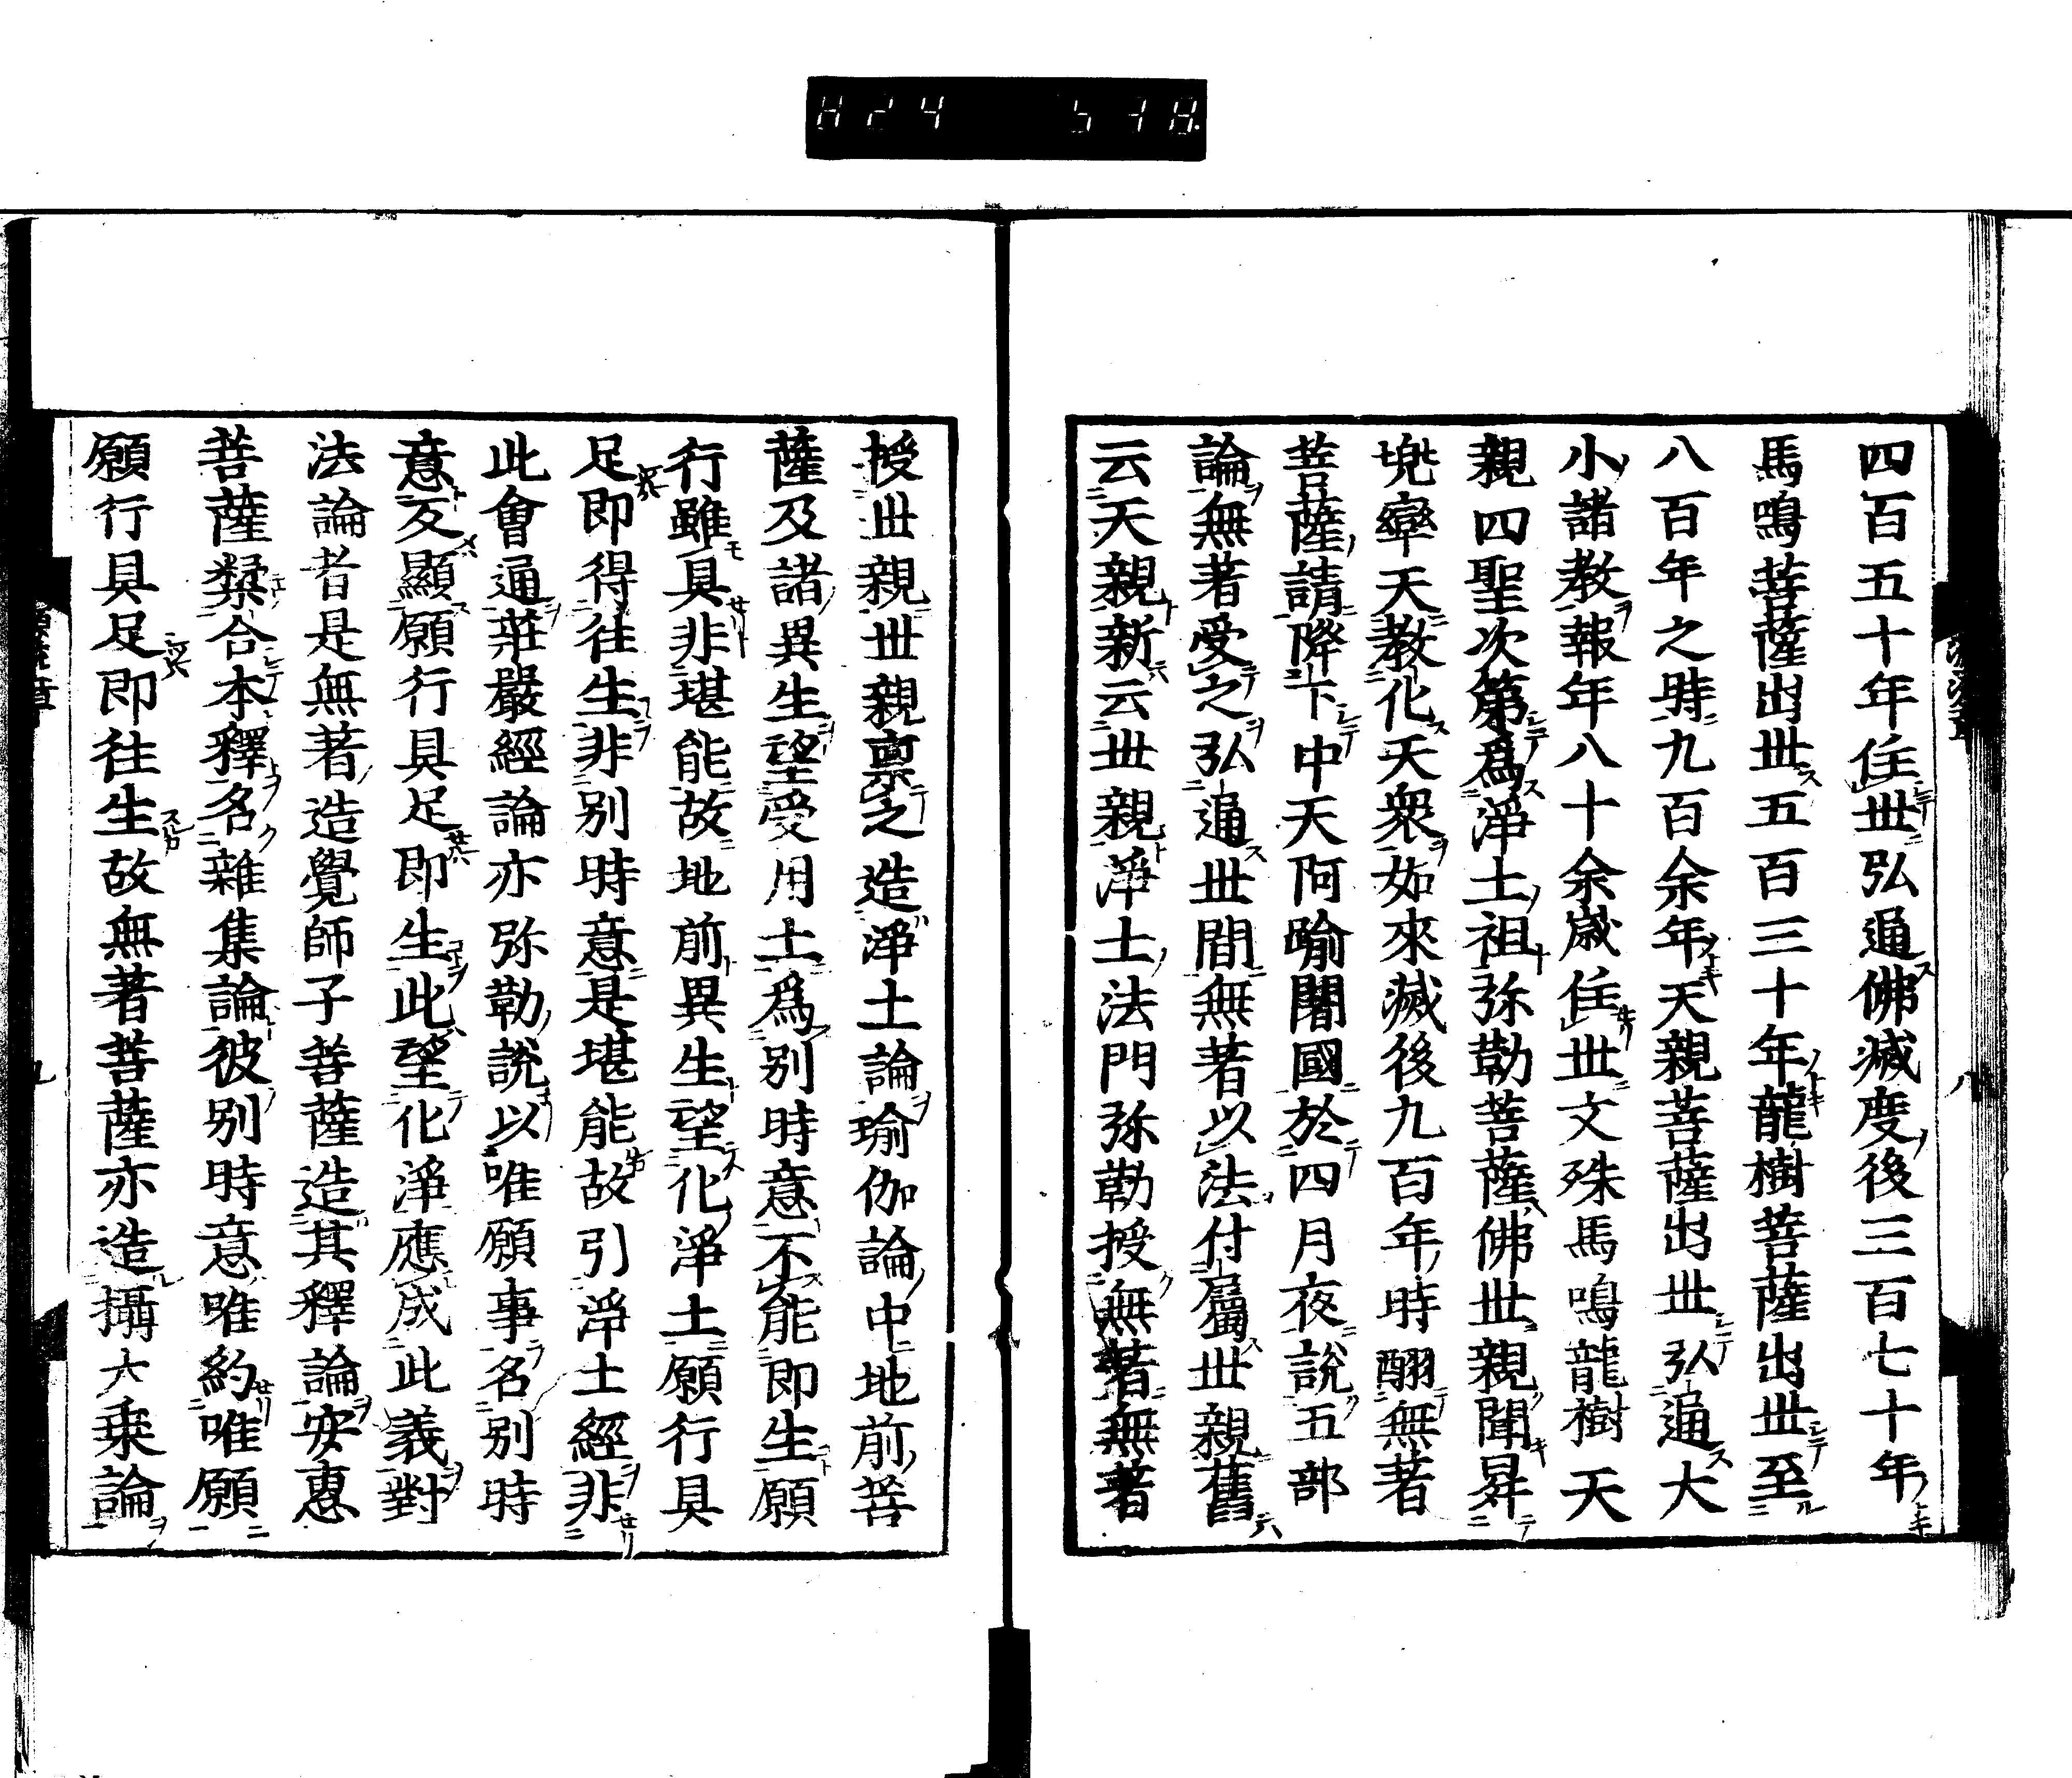 四百五十年住世弘通佛滅度後三百七十年
馬鳴菩薩出世五百三十年龍樹菩薩出世至
八百年之時九百余年天親菩薩出世弘通大
小諸教報年八十余歳住世文殊馬鳴龍樹天
親四聖次第爲淨土祖弥勒菩薩佛世親聞昇
兠率天教化天衆如來滅後九百年時酬無著
菩薩請降下中天阿喻闍國於四月夜説五部
論無著受之弘通世間無著以法付屬世親舊
云天親新云世親淨土法門弥勒授無著無著
授世親世親禀之造淨土論瑜伽論中地前菩
薩及諸異生望受用土爲別時意不能即生願
行雖具非堪能故地前異生望化淨土願行具
足即得往生非別時意是堪能故引淨土經非
此會通莊嚴經論亦弥勒説以唯願事名別時
意反顯願行具足即生此望化淨應成此義對
法論者是無著造覺師子菩薩造其釋論安惠
菩薩糅合本釋名雜集論彼別時意唯約唯願
願行具足即往生故無著菩薩亦造攝大乘論
八